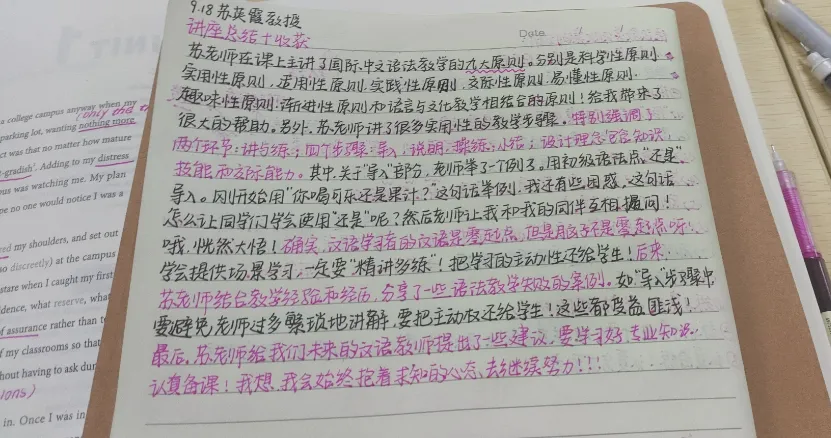 9.18 苏英霞教授
讲座总结+收获
Date
苏老师在课上主讲了国际中文语法教学的九大原则。分别是科学性原则
实用性原则，适用性原则，实践性原则，交际性原则，易懂性原则，
趣味性原则，渐进性原则和语言与文化教学相结合的原则！给我带来了
很大的帮助。另外，苏老师讲了很多实用性的教学步骤。特别强调了
两个环节：讲与练；四个步骤：导入，说明，操练，小结；设计理念包含知识，
技能和交际能力。其中，关于"导入"部分，老师举了一个例子。用初级语法点"还是"
导入。刚开始用"你喝可乐还是果汁？"这句话举例，我还有些困惑，这句话
怎么让同学们学会使用"还是"呢？然后老师让我和我的同伴互相提问！
哦，恍然大悟！确实，汉语学习有的汉语是零起点，但是脑子不是零起点呀！
学会提供场景学习，一定要"精讲多练"！把学习的主动性还给学生！后来，
苏老师结合教学经验和经历，分享了一些语法教学失败的案例。如"导入"步骤中
要避免老师过多繁琐地讲解，要把主动权还给学生！这些都受益匪浅！
最后，苏老师给我们未来的汉语教师提出了一些建议，要学习好专业知识，
认真备课！我想，我会始终抱着求知的心态，去继续努力！！！
a college campus anyway when my
(only that
parking lot, wanting nothing more
ct was that no matter how mature
-gradish'. Adding to my distress
pus was watching me. My plan
pe no one would notice I was a
ed my shoulders, and set out
so discreetly) at the campus
state when I caught my first
idence, what reserve, what
of assurance rather than
of my classrooms so that
hout having to ask
ions)
in. Once I was in